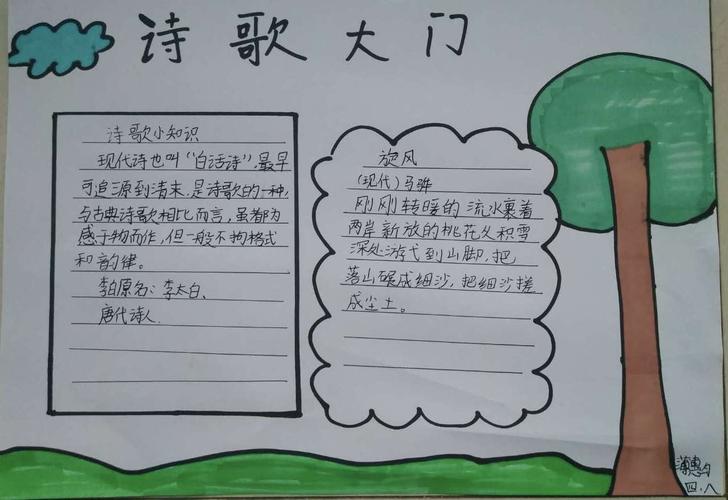 诗歌大门
诗歌小知识
现代诗也叫“白话诗”,最早
可追源到清末,是诗歌的一种,
与古典诗歌相比而言,虽都为
感于物而作,但一般不拘格式
和韵律。
李白原名:李太白、
唐代诗人.
旋风
(现代)马骅
刚刚转暖的流水裹着
两岸新放的桃花从积雪
深处游弋到山脚,把
落山碾成细沙,把细沙搓
成尘土。
四.八